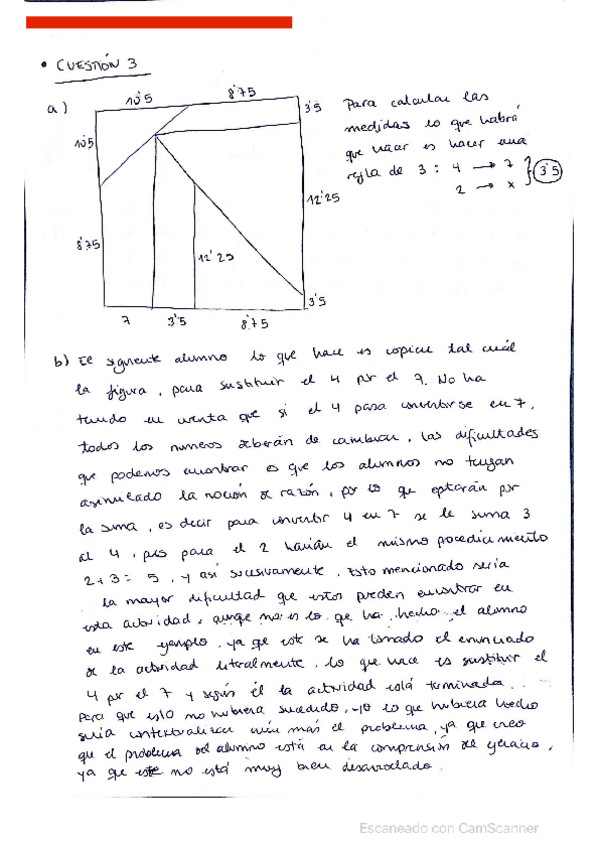 • CUESTIÓN 3
a)
10'5
8'75
3'5
10'5
12'25
8'75
12'25
3'5
7
3'5
8'75
Para calcular las
medidas lo que habrá
que hacer es hacer una
regla de 3: 4 → 7
2 → x
3'5
b) El siguiente alumno lo que hace es copiar tal cuál
la figura, para sustituir el 4 por el 7. No ha
tenido en cuenta que si el 4 pasa convertirse en 7,
todos los numeros deberán de cambiar, las dificultades
que podemos encontrar es que los alumnos no tengan
asimilado la noción de razón, por lo que optarán por
la suma, es decir para convertir 4 en 7 se le suma 3
al 4, pues para el 2 harían el mismo procedimiento
2+3=5, y así sucesivamente. Esto mencionado sería
la mayor dificultad que estos pueden encontrar en
esta actividad, aunque no es lo que ha hecho el alumno
en este ejemplo, ya que este se ha tomado el enunciado
de la actividad literalmente, lo que hace es sustituir el
4 por el 7 y según él la actividad está terminada.
Para que esto no hubiera sucedido, yo lo que hubiera hecho
sería contextualizar aún más el problema, ya que creo
que el problema del alumno está en la comprensión del ejercicio,
ya que este no está muy bien desarrollado.
Escaneado con CamScanner